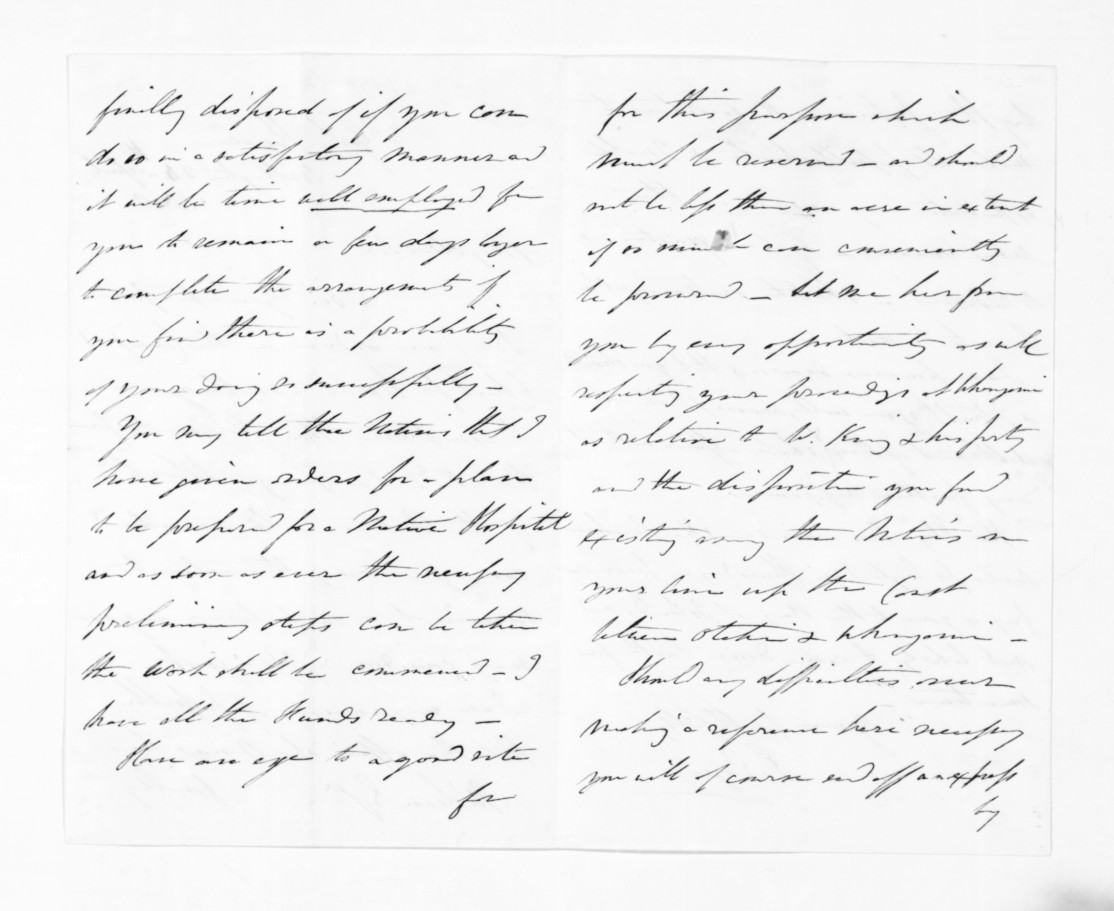 finally disposed of if you can
do so in a satisfactory manner and
it will be time well employed for
you to remain a few days longer
to complete the arrangements if
you find there is a probability
of your doing so successfully –
You may tell the Natives that I
have given orders for a plan
to be prepared for a Native Hospital
and as soon as ever the necessary
preliminary steps can be taken
the work shall be commenced – I
have all the Funds ready –
Have an eye to a good site
for
for this purpose which
must be reserved – and should
not be less than an acre in extent
if as much can conveniently
be procured – Let me hear from
you by every opportunity as well
respecting your proceedings at Whanganui
as relative to W. King & his party
and the disposition you find
existing among the Natives on
your line up the Coast
between Otaki & Whanganui –
Should any difficulties occur
making a reference here necessary
you will of course send off an express
by